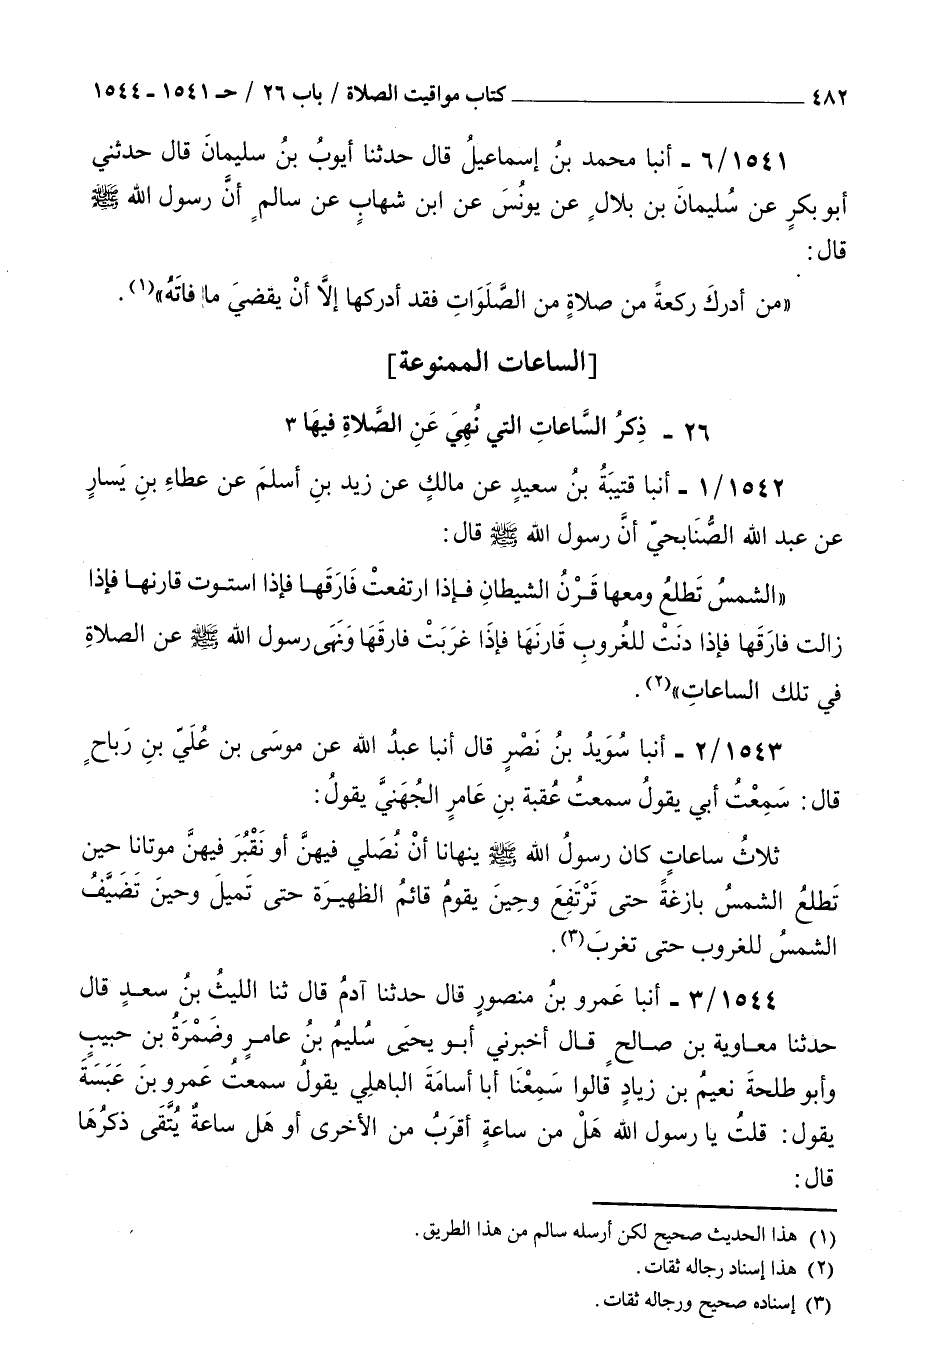 ٤٨٢ كتاب مواقيت الصلاة / باب ٢٦ / حـ ١٥٤١ - ١٥٤٤
٦/١٥٤١ - أنبا محمد بنُ إسماعيلُ قال حدثنا أيوبُ بنُ سليمانَ قال حدثني
أبو بكرٍ عن سُليمانَ بن بلالٍ عن يونُسَ عن ابن شهابٍ عن سالمٍ أنَّ رسول الله ﷺ
قال:
«من أدركَ ركعةً من صلاةٍ من الصَّلَوَاتِ فقد أدركها إلاَّ أنْ يقضيَ ما فاتَهُ»(١).
[الساعات الممنوعة]
٢٦ - ذِكرُ السَّاعاتِ التي نُهِيَ عَنِ الصَّلاةِ فيهَا ٣
١/١٥٤٢ - أنبا قتيبَةُ بنُ سعيدٍ عن مالكٍ عن زيد بنِ أسلمَ عن عطاءِ بنِ يَسارٍ
عن عبد الله الصُّنَابحيّ أنَّ رسول الله ﷺ قال:
«الشمسُ تَطلعُ ومعها قَرْنُ الشيطانِ فإذا ارتفعتْ فَارَقَها فإذا استوت قارنها فإذا
زالت فارَقَها فإذا دنَتْ للغُروبِ قَارنَهَا فإذَا غرَبَتْ فارقَهَا وَنَهَى رسول الله ﷺ عن الصلاةِ
في تلك الساعاتِ»(٢).
٢/١٥٤٣ - أنبا سُوَيدُ بنُ نَصْرٍ قال أنبا عبدُ الله عن موسَى بن عُلَيّ بنِ رَباحٍ
قال: سَمِعْتُ أبي يقولُ سمعتُ عُقبة بنِ عَامرٍ الجُهَنيَّ يقولُ:
ثلاثُ ساعاتٍ كان رسولُ الله ﷺ ينهانا أنْ نُصَلي فيهنَّ أو نَقْبُرَ فيهنَّ موتانا حين
تَطلعُ الشمسُ بازغةً حتى تَرْتَفِعَ وحِينَ يقومُ قائمُ الظهيرَة حتى تَميلَ وحينَ تَضَيَّفُ
الشمسُ للغروب حتى تغربَ(٣).
٣/١٥٤٤ - أنبا عَمرو بنُ منصورٍ قال حدثنا آدمُ قال ثنا الليثُ بنُ سعدٍ قال
حدثنا معاوية بن صالحٍ قال أخبرني أبو يحيَى سُليمُ بنُ عامرٍ وضَمْرَةُ بن حبيبٍ
وأبو طلحةَ نعيمُ بن زيادٍ قالوا سَمِعْنَا أبا أسامَةَ الباهلِي يقولُ سمعتُ عَمرو بنَ عَبَسَةَ
يقول: قلتُ يا رسول الله هَلْ من ساعةٍ أقرَبُ من الأخرى أو هَل ساعةٌ يُتَّقَى ذكرُهَا
قال:
(١) هذا الحديث صحيح لكن أرسله سالم من هذا الطريق.
(٢) هذا إسناد رجاله ثقات.
(٣) إسناده صحيح ورجاله ثقات.